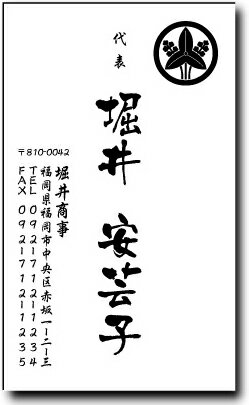 代表
堀井 安芸子
堀井商事
〒810-0042
福岡県福岡市中央区赤坂一-二-三
TEL 092-712-1234
FAX 092-712-1235